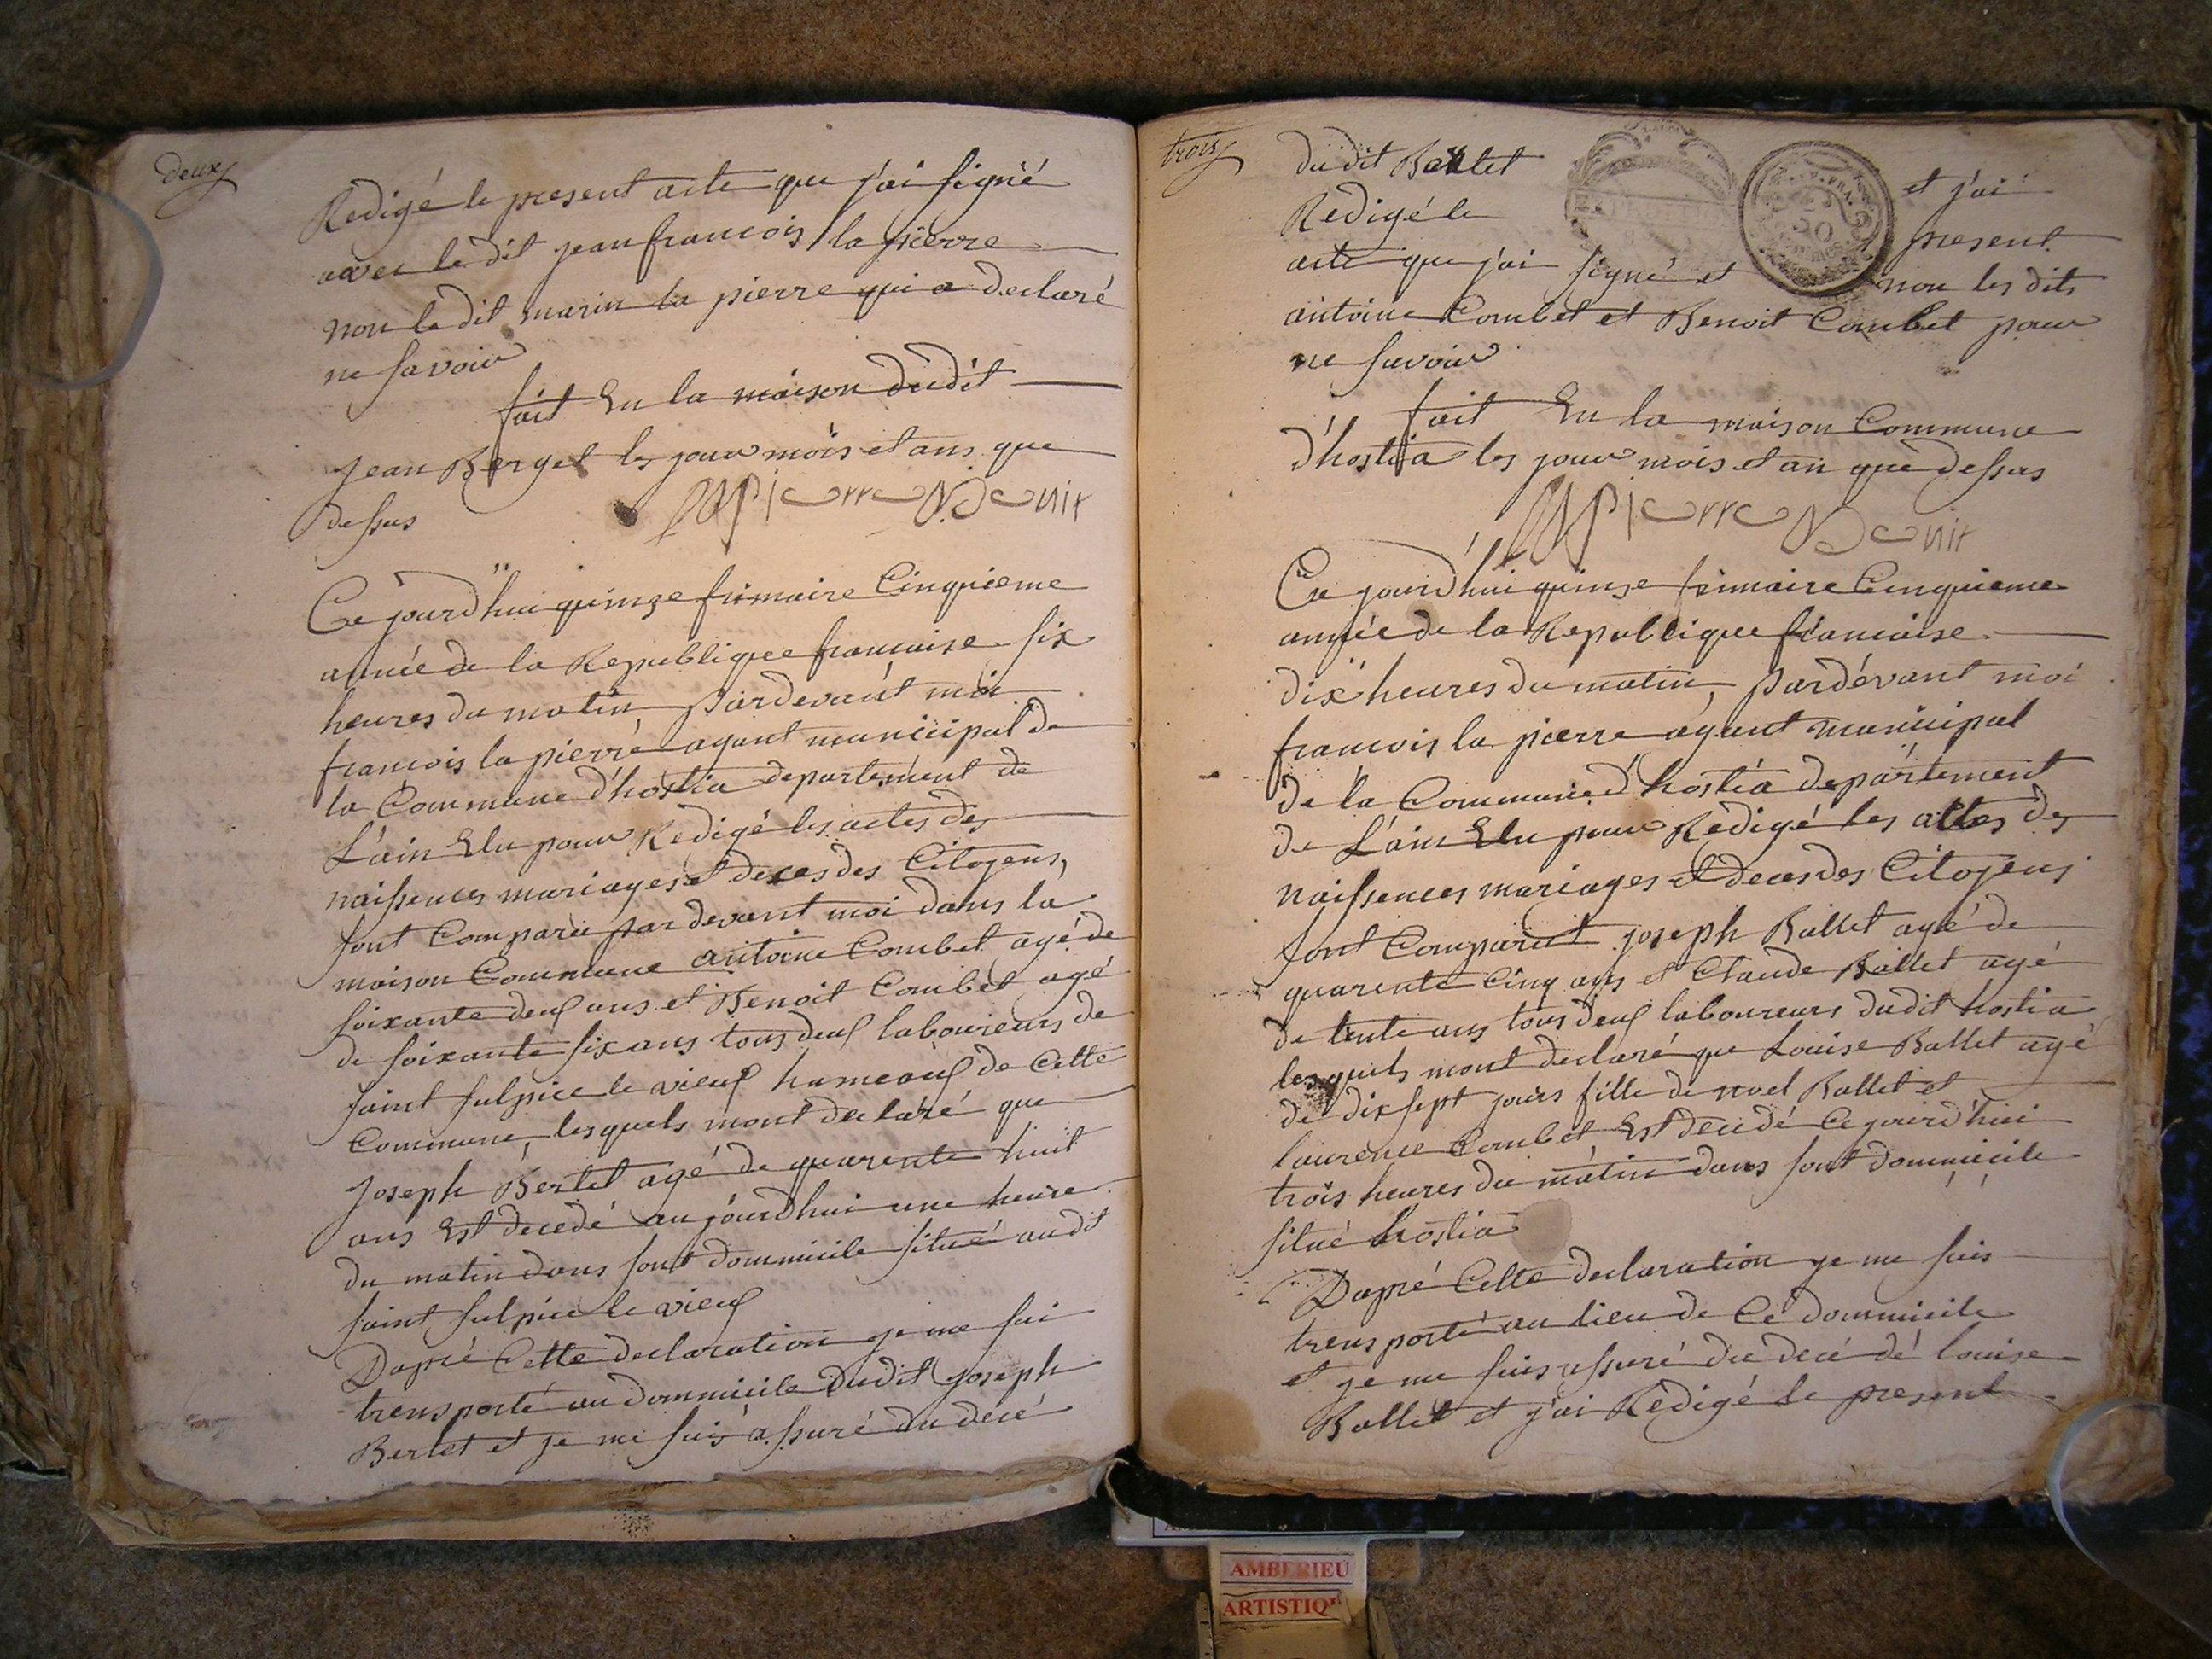 deux
Redigé le present acte que j'ai signé
avec le dit jean francois la pierre
non le dit marin la pierre qui a declaré
ne savoir
fait En la maison dudit
jean Berget les jour mois et ans que
dessus
lapierre
Ce jourd'hui quinze frimaire Cinquieme
année de la Republique francaise six
heures du matin, pardevant moi
francois la pierre agent municipal de
la Commune d'hostia departement de
L'ain Elu pour Redigé les actes des
naissences mariages et deces des Citoyens,
sont Comparu par devant moi dans la
maison Commune antoine Combet agé de
soixante deux ans et Benoit Combet agé
de soixante six ans tous deux laboureurs de
saint sulpice le vieux hameaux de Cette
Commune, lesquels mont declaré que
joseph Bertet agé de quarente huit
ans Est decedé aujourdhui une heure
du matin dans sont dommicile situé audit
saint sulpice le vieux
Dapré Cette declaration je me sui
trensporté au dommicile dudit joseph
Bertet et je me suis assuré du decé
trois
dudit Bertet et j'ai
Redigé le present
acte que j'ai signé et non les dits
antoine Combet et Benoit Combet pour
ne savoir
fait En la maison Commune
d'hostia les jour mois et an que dessus
lapierre
Ce jourd'hui quinse frimaire Cinquieme
année de la Republique francaise
dix heures du matin, pardévant moi
francois la pierre agent municipal
de la Commune d'hostia departement
de L'ain Elu pour Redigé les actes des
naissences mariages et deces des Citoyens
sont Comparut joseph Ballet agé de
quarente Cinq ans et Claude Ballet agé
de trente ans tous deux laboureurs dudit hostia
lesquels mont declaré que Louise Ballet agé
de dix sept jours fille de noel Ballet et
laurence Combet Est decédé Ce jourd'hui
trois heures du matin dans sont dommicile
situé hostia
Dapré Cette declaration je me suis
trensporté au lieu de Ce dommicile
et je me suis assuré du decé dé louise
Ballet et j'ai Redigé le present
AMBERIEU
ARTISTIQ